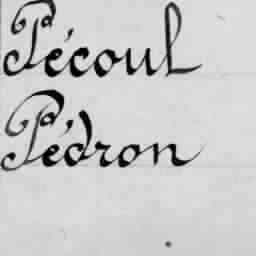 Pécoul
Pédron